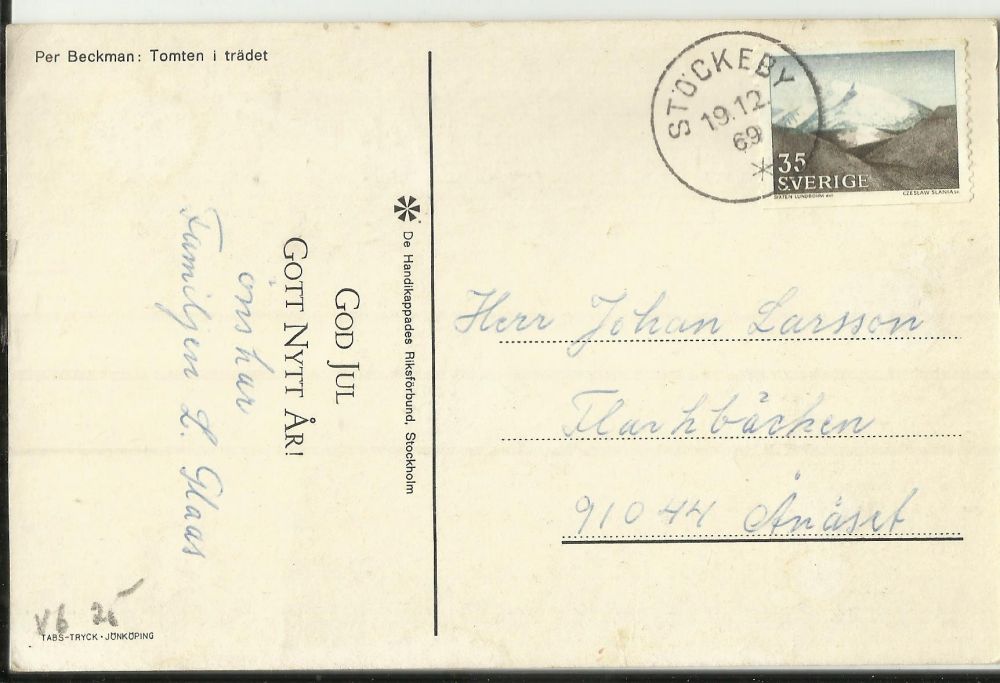 Per Beckman: Tomten i trädet
STÖCKEBY
19.12.
69
35
SVERIGE
STATEN LUNDBOHM del
CZESLAW SLANIA sc
De Handikappades Riksförbund, Stockholm
GOD JUL
GOTT NYTT ÅR!
önskar
Familjen L. Glaas
Herr Johan Larsson
Flarkbäcken
91044 Ånäset
VB 25
TABS-TRYCK · JÖNKÖPING